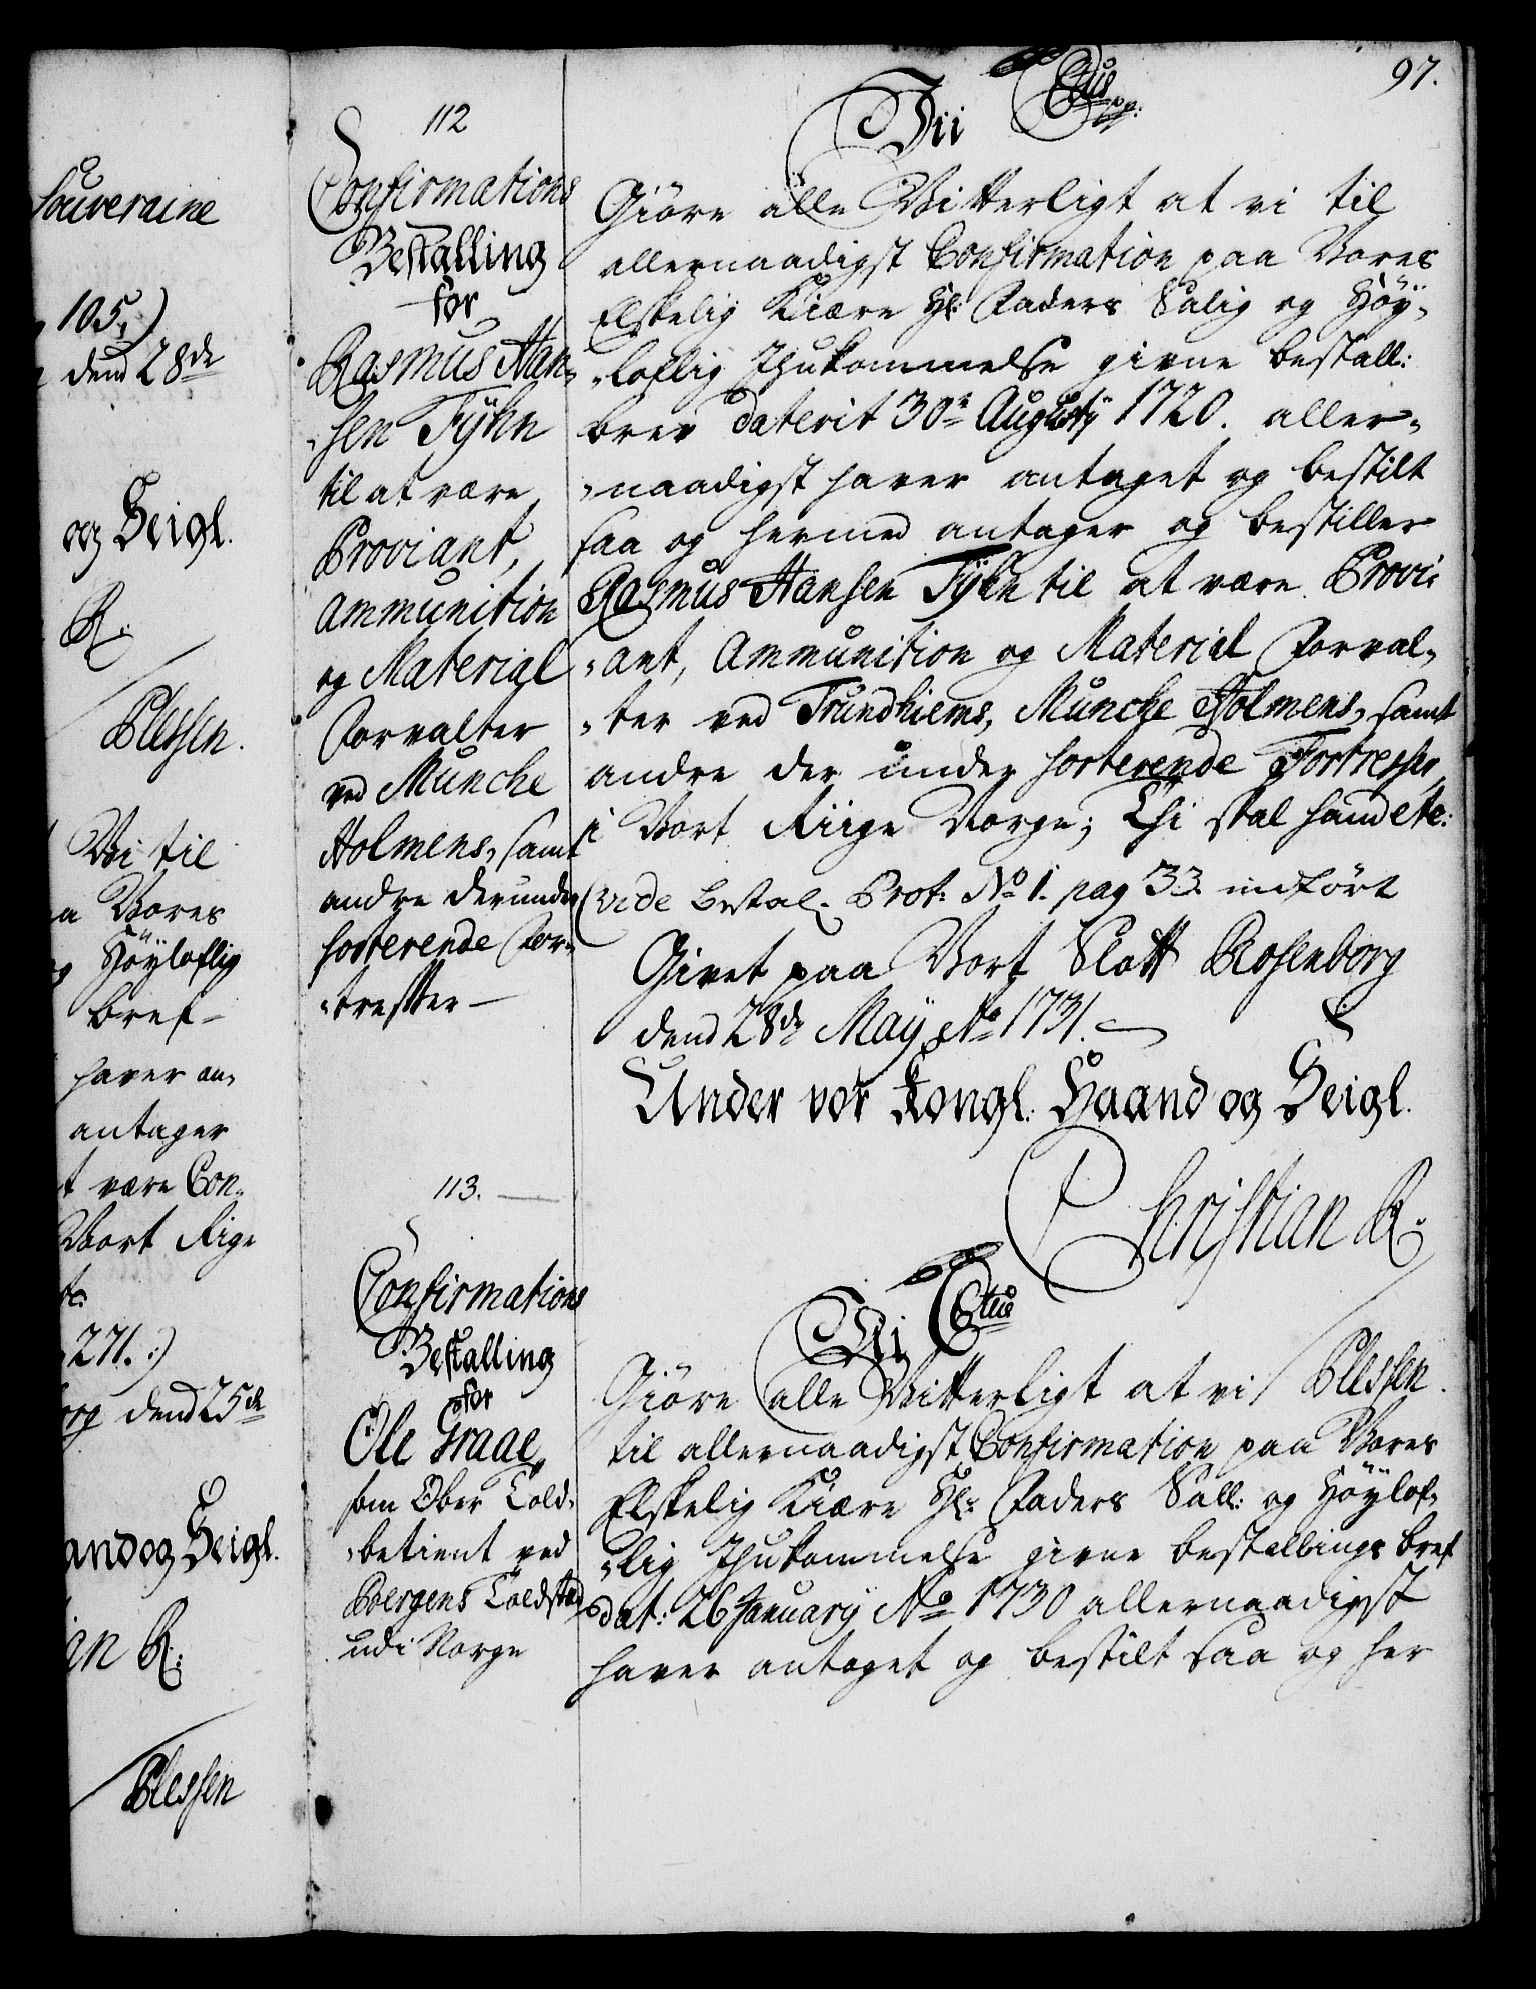 Souveraine
105.)
dend 28de
og Seigl.
R.
Plessen.
Vi til
Vores
Höyloflig
bref
haver an-
antager
t være Con-
Vort Rige
271. :)
dend 25de
and og Seigl.
an R:
Plessen
97.
112
Confirmations
Bestalling
for
Rasmus Han-
-sen Tÿhn
til at være
Proviant,
Ammunition
og Material
Forvalter
ved Munche
Holmens, samt
andre derunder
sorterende For-
-tresser
Vii Ctus pp:
Giöre alle Vitterligt at vi til
allernaadigst Confirmation paa Vores
Elskelig Kiære Hr: Faders Salig og Höÿ-
-loflig Ihukommelse givne bestall:
brev daterit 30te Augustÿ 1720. aller-
-naadigst haver antaget og bestilt
saa og hermed antager og bestiller
Rasmus Hansen Tÿhn til at være Provi-
-ant, Ammunition og Material Forval-
-ter ved Trundhiems, Munche Holmens, samt
andre der under sorterende Fortresser
i Vort Riige Norge; Thi skal hand etc:
(vide Bestal. Prot: No 1. pag 33. indfört
Givet paa Vort Slott Rosenborg
dend 28de Maÿ Ao 1731.
Under vor Kongl. Haand og Seigl.
Christian R.
Plessen.
113.
Confirmations
Bestalling
for
Ole Graae
som Ober Told-
-betient ved
Bergens Toldsted
udi Norge
Vi Ctus
Giöre alle Vitterligt at vi
til allernaadigst Confirmation paa Vores
Elskelig Kiære Hr: Faders Sall: og Höÿlof-
-lig Ihukommelse givne bestallings bref
dat: 26 Januarÿ Ao 1730 allernaadigst
haver antaget og bestilt saa og her